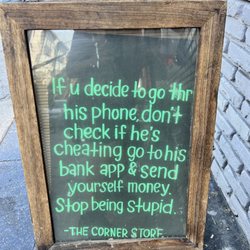 If u decide to go thr
his phone, don't
check if he's
cheating go to his
bank app & send
yourself money.
Stop being stupid.
-THE CORNER STORE